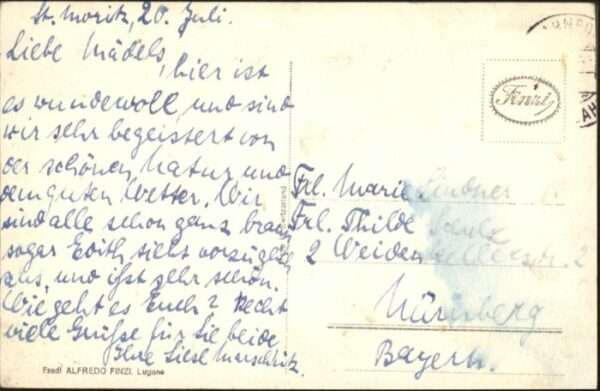 St. Moritz, 20. Juli.
Liebe Mädels,
hier ist
es wundervoll und sind
wir sehr begeistert von
der schönen Natur und
dem guten Wetter. Wir
sind alle schon ganz braun
sogar Edith sieht vorzüglich
aus, und ißt sehr schön.
Wie geht es Euch? Recht
viele Grüße für Sie beide
Ihre Liesl
Fosdi ALFREDO FINZI, Lugano
Finzi
Frl. Marie Lindner
Frl. Thilde
2 Weiden 2
Nürnberg
Bayern.